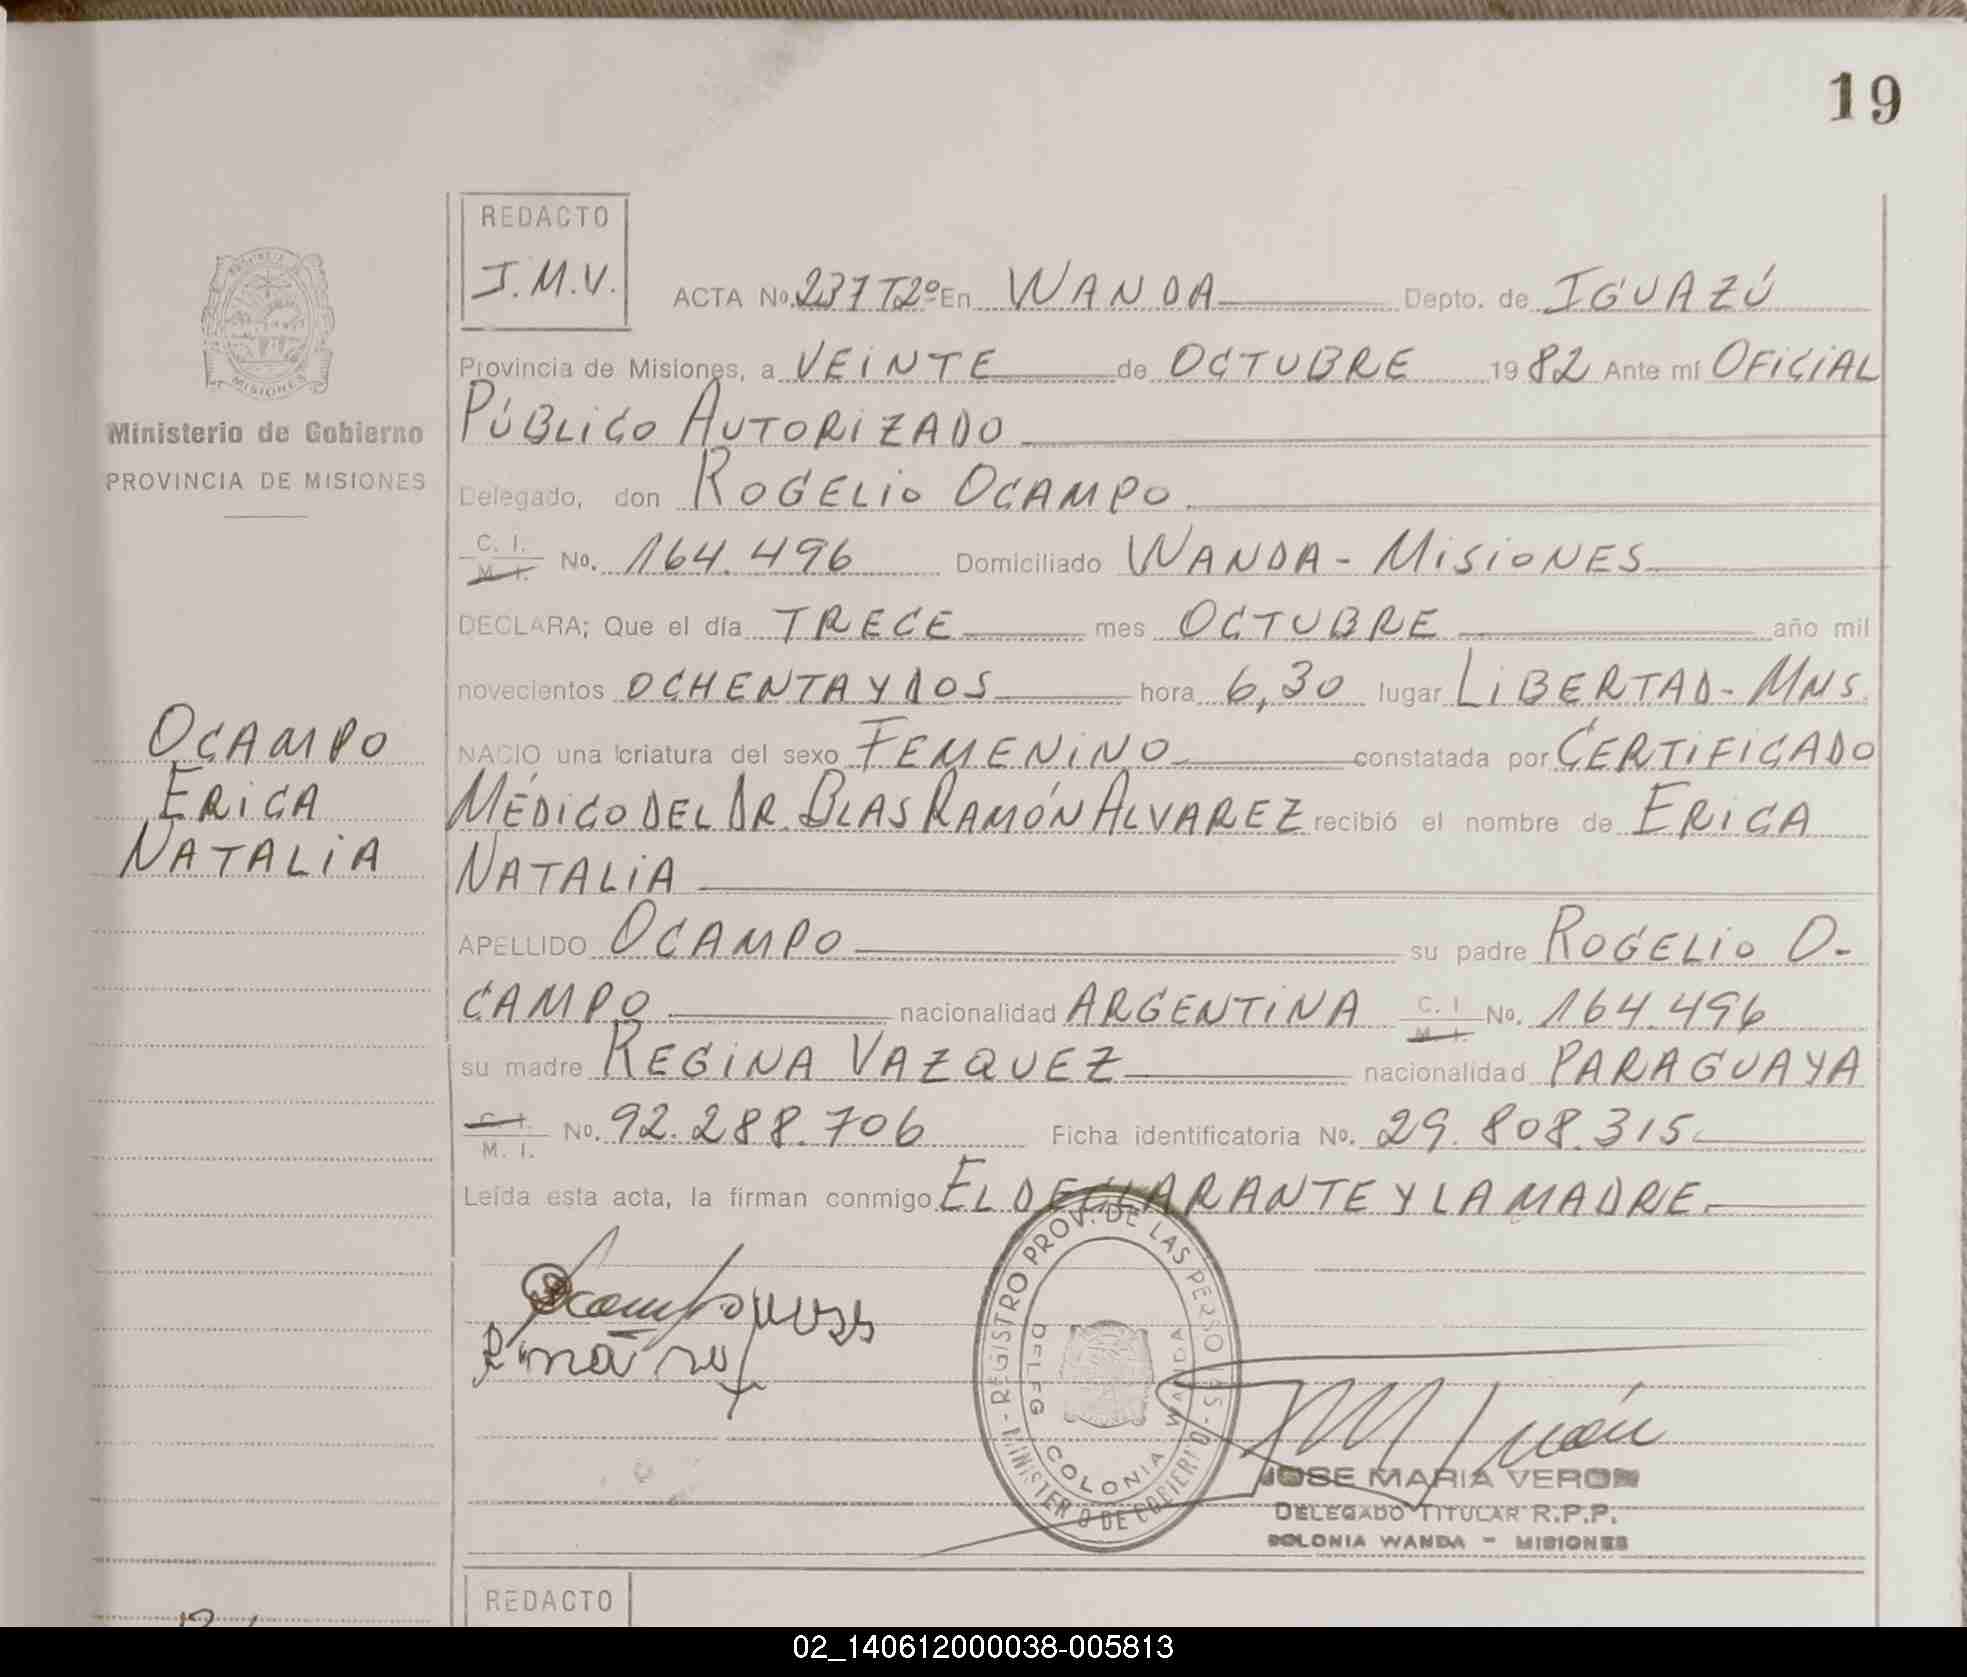 19
REDACTO
J.M.V.
ACTA No. 237 T2º En WANDA Depto. de IGUAZÚ
Provincia de Misiones, a VEINTE de OCTUBRE 1982 Ante mí OFICIAL
PÚBLICO AUTORIZADO
Delegado, don ROGELIO OCAMPO
C. I. M. I. No. 164.496 Domiciliado WANDA - MISIONES
DECLARA; Que el día TRECE mes OCTUBRE año mil
novecientos OCHENTA Y DOS hora 6,30 lugar LIBERTAD - MNS.
NACIO una criatura del sexo FEMENINO constatada por CERTIFICADO
MÉDICO DEL DR. BLAS RAMÓN ALVAREZ recibió el nombre de ERICA
NATALIA
APELLIDO OCAMPO su padre ROGELIO O-
CAMPO nacionalidad ARGENTINA C. I. M. I. No. 164.496
su madre REGINA VAZQUEZ nacionalidad PARAGUAYA
C. I. M. I. No. 92.288.706 Ficha identificatoria No. 29.808.315
Leída esta acta, la firman conmigo EL DECLARANTE Y LA MADRE.
MISIONES
Ministerio de Gobierno
PROVINCIA DE MISIONES
OCAMPO
ERICA
NATALIA
Ocampo
REGISTRO PROV. DE LAS PERSONAS - MINISTERIO DE GOBIERNO
COLONIA WANDA
JOSE MARIA VERON
DELEGADO TITULAR R.P.P.
COLONIA WANDA - MISIONES
REDACTO
02_140612000038-005813